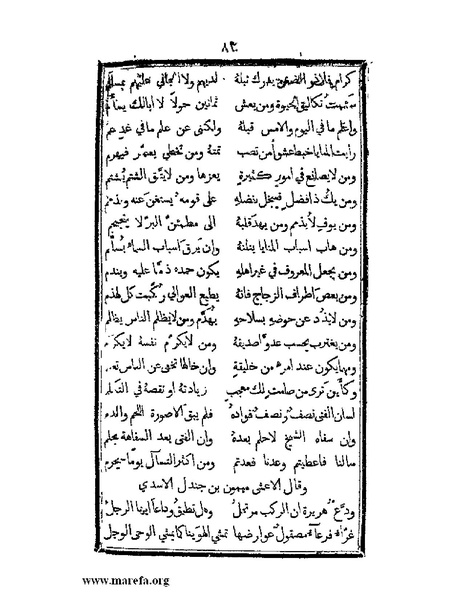 ٨٢
كرام فلا ذو الضغن يدرك تبله لديهم ولا الجاني عليهم بمسلم
سئمت تكاليف الحيوة ومن يعش ثمانين حولًا لا ابالك يسأم
واعلم ما في اليوم والامس قبله ولكنني عن علم ما في غدٍ عم
رأيت المنايا خبط عشواء من تصب تمته ومن تخطئ يعمر فيهرم
ومن لا يصانع في امورٍ كثيرة
ومن يك ذا فضل فيبخل بفضله على قومه يستغن عنه ويذمم
ومن يوف لا يذمم ومن يهد قلبه الى مطمئن البر لا يتجمجم
ومن هاب اسباب المنايا ينلنه وإن يرق اسباب السماء بسلم
ومن يجعل المعروف في غير اهله يكون حمده ذمًّا عليه ويندم
ومن يعص اطراف الزجاج فانه يطيع العوالي ركبت كل لهذم
ومن لا يذد عن حوضه بسلاحه يهدّم ومن لا يظلم الناس يظلم
ومن يغترب يحسب عدوًّا صديقه ومن لا يكرم نفسه لا يكرم
ومهما يكون عند امرء من خليقة وإن خالها تخفى عن الناس
وكأين ترى من صامت لك معجب زيادته او نقصه في التكلم
لسان الفتى نصف ونصف فواده فلم يبق الا صورة اللحم والدم
وإن سفاه الشيخ لا حلم بعده وإن الفتى بعد السفاهة يحلم
سالنا فاعطيتم وعدنا فعدتم ومن اكثر التسآل يومًا سيحرم
وقال الاعشى ميمون بن جندل الاسدي
ودّع هريرة ان الركب مرتحل وهل تطيق وداعًا ايها الرجل
غرّاء فرعاء مصقول عوارضها تمشي الهوينا كما يمشي الوجى الوجل
www.marefa.org